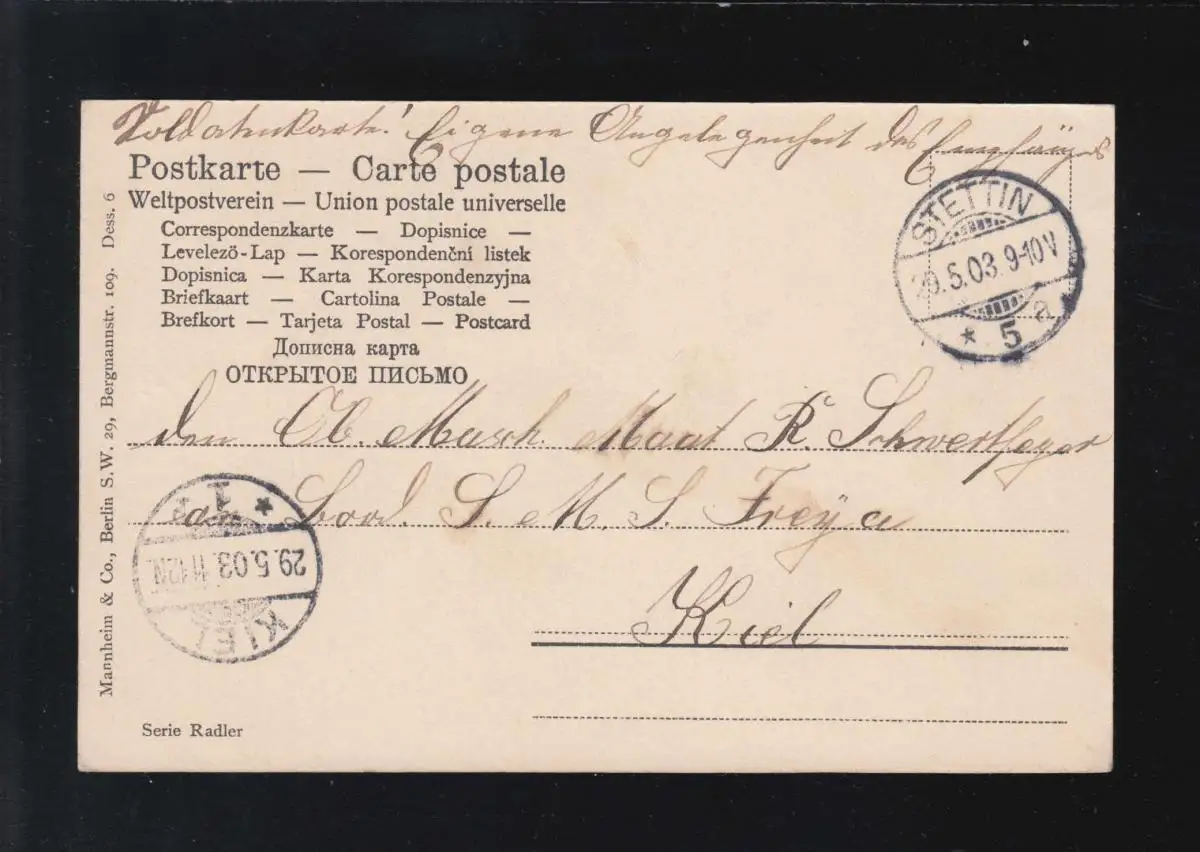 Soldatenkarte! Eigene Angelegenheit des Empfängers
Postkarte — Carte postale
Weltpostverein — Union postale universelle
Correspondenzkarte — Dopisnice —
Levelező-Lap — Korespondenční listek
Dopisnica — Karta Korespondenzyjna
Briefkaart — Cartolina Postale —
Brefkort — Tarjeta Postal — Postcard
Дописна карта
ОТКРЫТОЕ ПИСЬМО
STETTIN
29.5.03. 9-10V
* 5 a
den Ob. Masch. Maat R. Schwertfeger
an Bord. S. M. S. Freya
Kiel
KIEL
29.5.03. 11-12N.
* 1
Mannheim & Co., Berlin S.W. 29, Bergmannstr. 109. Dess. 6
Serie Radler